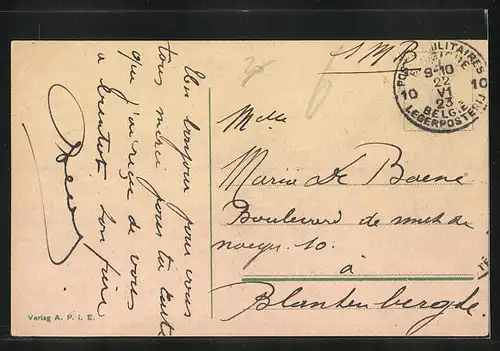 Un bonjour pour vous
tous merci pour ta carte
que j'ai reçue de vous
a bientot ton frère
S.M.B.
POSTES MILITAIRES
BELGIQUE
9-10
22
VI
23
10 10
BELGIË
LEGERPOSTERIJ
Melle
Maria De Baene
Boulevard de
10.
à
Blankenberghe.
Verlag A. P. i. E.